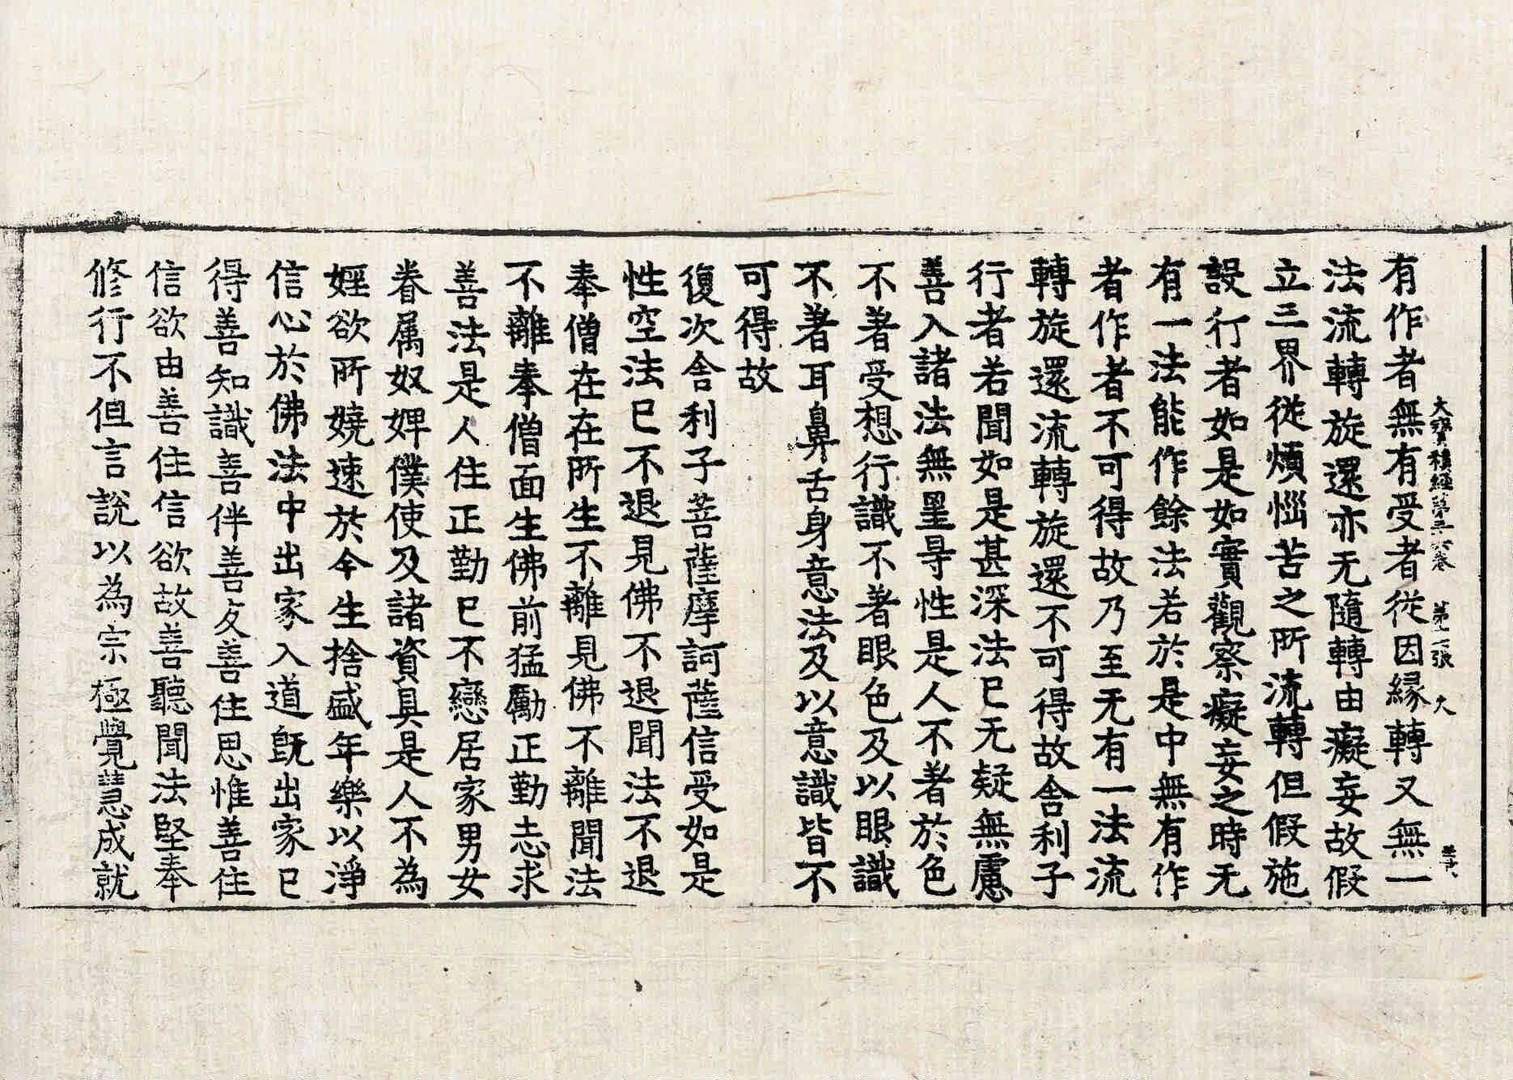 有作者無有受者從因緣轉又無一
大寶積經第三六卷 第十一張 大
法流轉旋還亦无隨轉由癡妄故假
立三界從煩惱苦之所流轉但假施
設行者如是如實觀察癡妄之時无
有一法能作餘法若於是中無有作
者作者不可得故乃至无有一法流
轉旋還流轉旋還不可得故舍利子
行者若聞如是甚深法已无疑無慮
善入諸法無罣㝵性是人不著於色
不著受想行識不著眼色及以眼識
不著耳鼻舌身意法及以意識皆不
可得故
復次舍利子菩薩摩訶薩信受如是
性空法已不退見佛不退聞法不退
奉僧在在所生不離見佛不離聞法
不離奉僧面生佛前猛勵正勤志求
善法是人住正勤已不戀居家男女
眷属奴婢僕使及諸資具是人不為
婬欲所嬈速於今生捨盛年樂以淨
信心於佛法中出家入道旣出家已
得善知識善伴善友善住思惟善住
信欲由善住信欲故善聽聞法堅奉
修行不但言說以為宗極覺慧成就